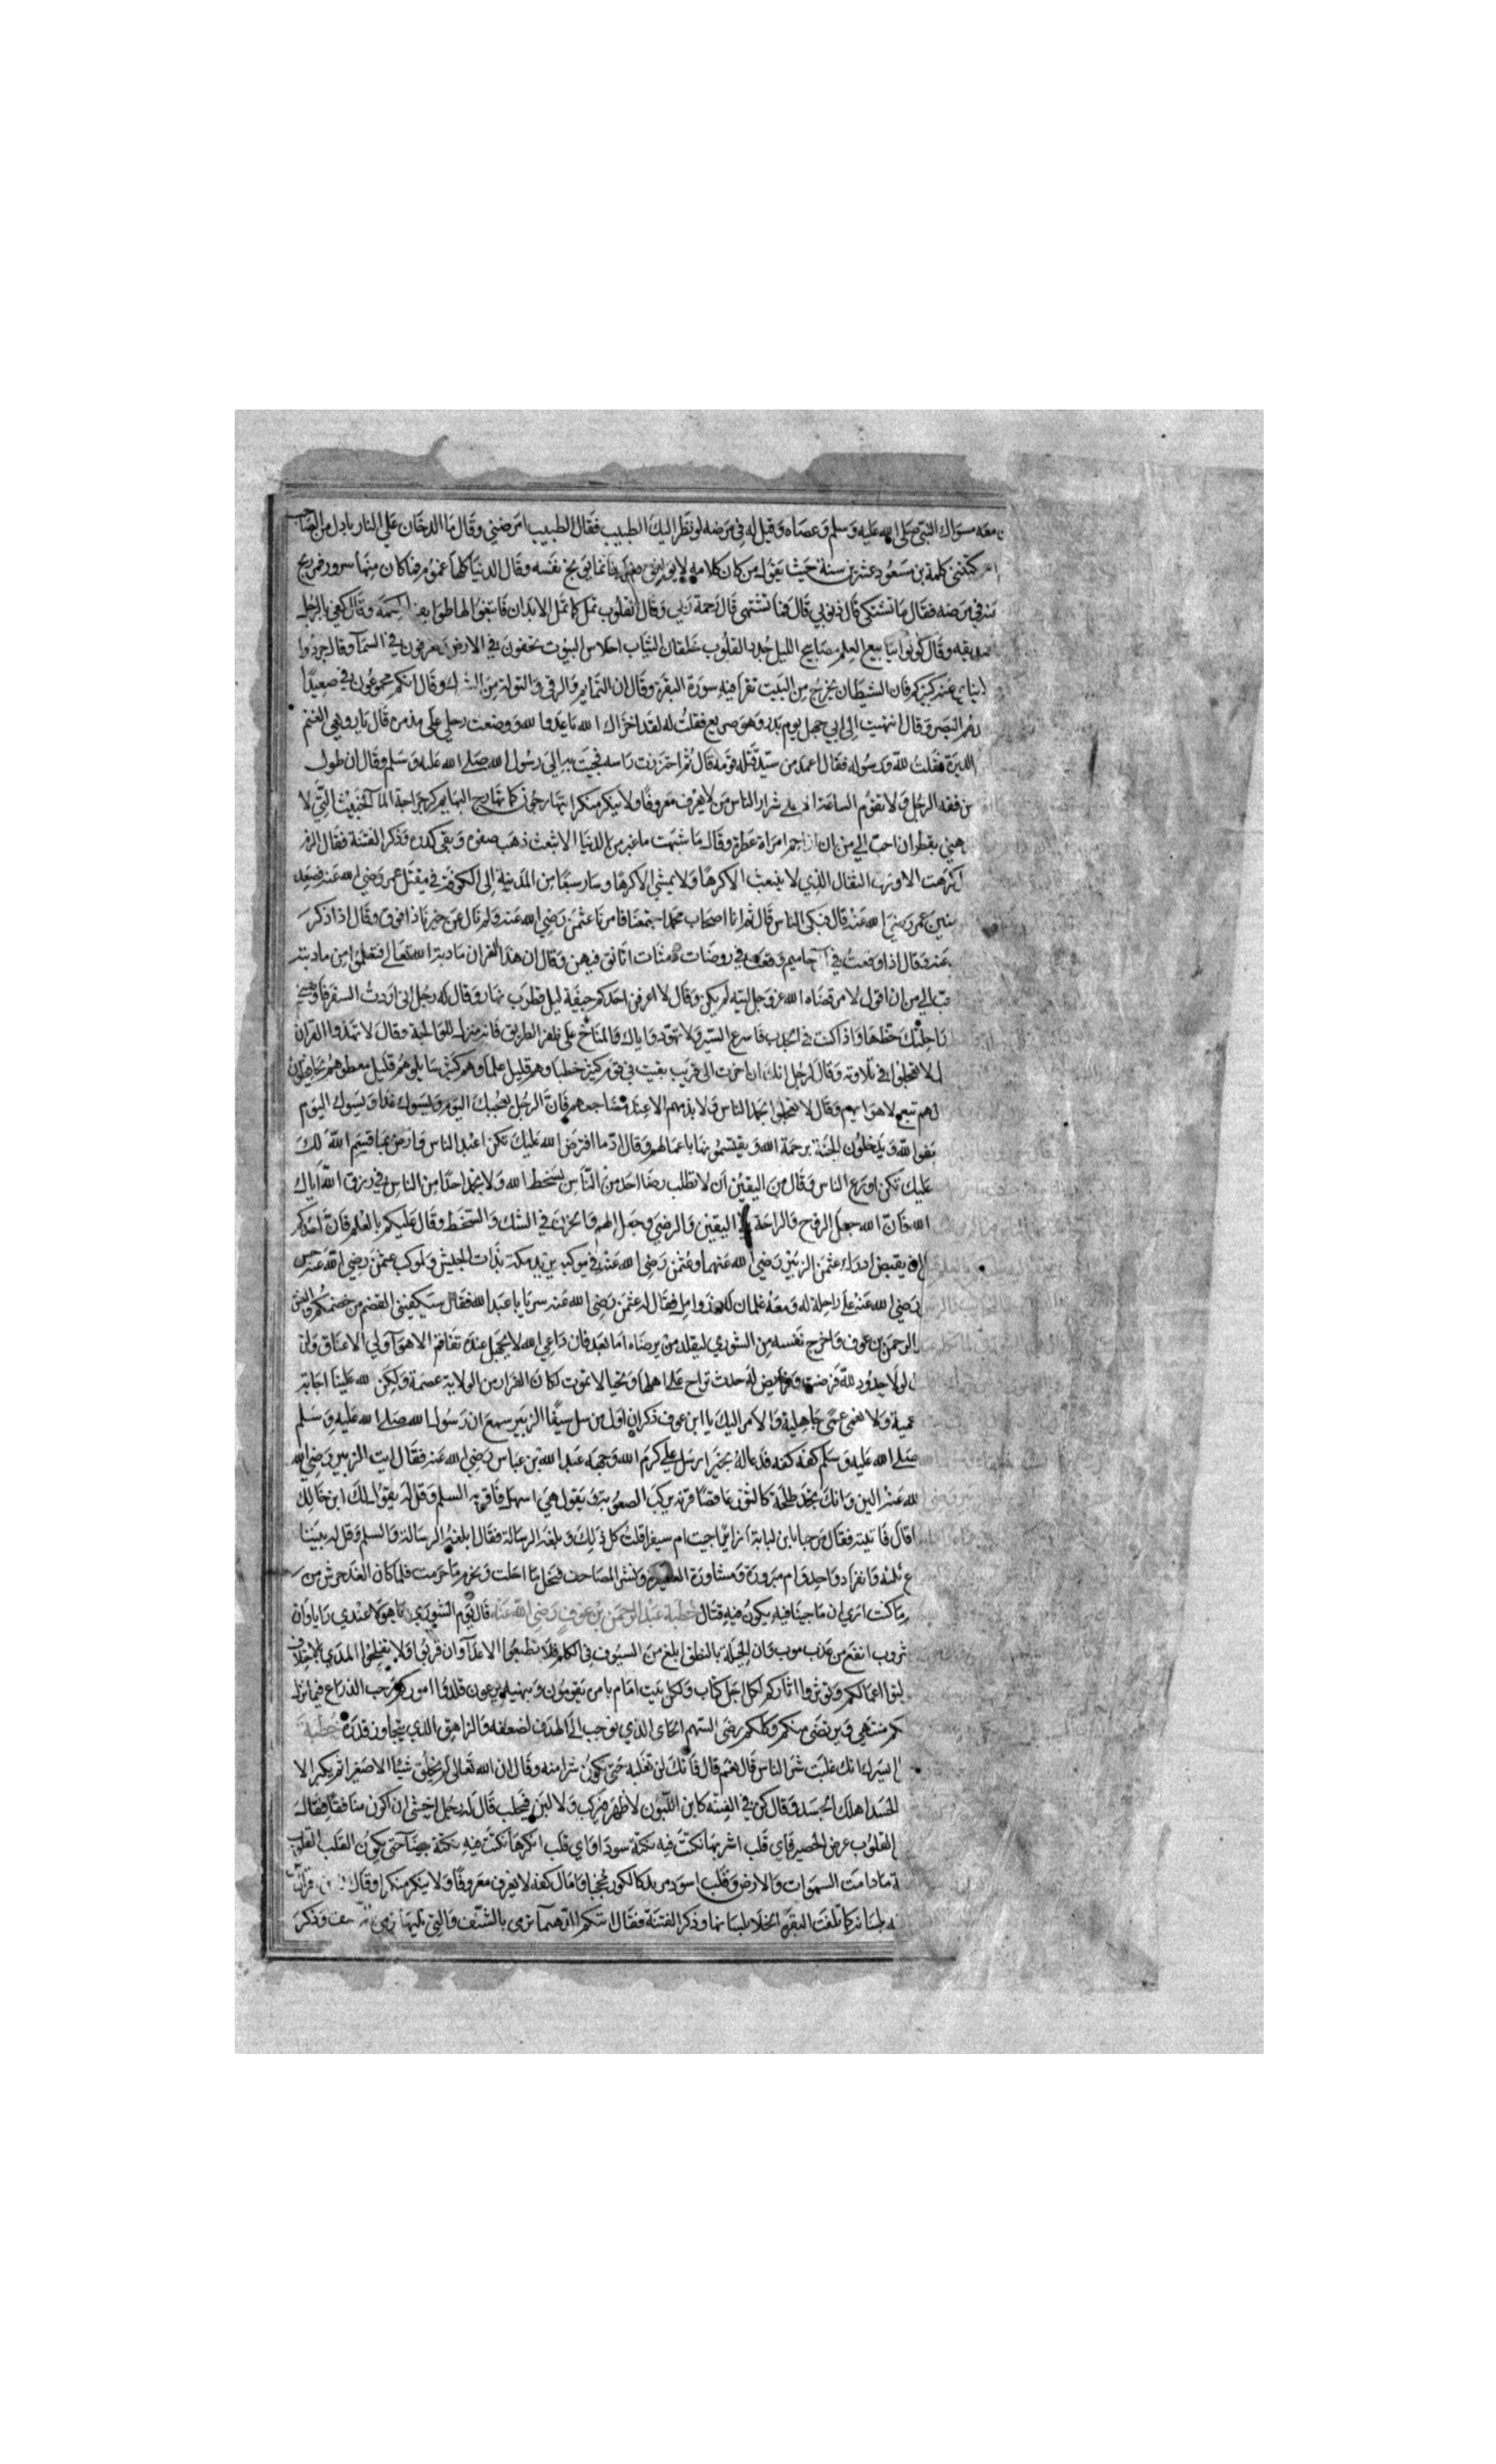 معه مسواك النبي صلى الله عليه وسلم وعصاه وقيل له في مرضه لو نظر اليك الطبيب فقال الطبيب امرضني وقال ما الدخان على النار بادل من الصاحب
كلمة بن مسعود عشرين سنة حيث يقول من كان كلامه لا يوافق فعله فانما يوبخ نفسه وقال الدنيا كلها غموم فما كان منها سرور فهو ربح
في مرضه فقال ما تشتكي قال ذنوبي قال فما تشتهي قال رحمة ربي وقال القلوب تمل كما تمل الابدان فابتغوا لها طرايف الحكمة وقال كفى بالرجل
وقال كونوا ينابيع العلم مصابيح الليل جدد القلوب خلقان الثياب احلاس البيوت تخفون في الارض تعرفون في السما وقال جردوا
فان الشيطان يخرج من البيت تقرا فيه سورة البقرة وقال ان التمايم والرقى والتولة من الشرك وقال انكم مجموعون في صعيد
البصر وقال انتهيت الى ابي جهل يوم بدر وهو صريع فقلت له لقد اخزاك الله يا عدو الله ووضعت رجلي على مذمره قال يا رويعي الغنم
الدبرة فقلت لله ورسوله فقال اعمد من سيد قتله قومه قال ثم اخترزت راسه فجيت به الى رسول الله صلى الله عليه وسلم وقال ان طول
من فقه الرجل ولا تقوم الساعة الا على شرار الناس من لا يعرف معروفا ولا ينكر منكرا يتهارجون كما تهارج البهايم كرجراجة الما الخبيث التي لا
بقطران احب الي من ان ازاحم امراة عطرة وقال ما شبهت ما غبر من الدنيا الا بثغب ذهب صفوه وبقي كدره وذكر الفتنة فقال الزم
الاورق الثفال الذي لا ينبعث الا كرها ولا يمشي الا كرها وسار سبعا من المدينة الى الكوفة في مقتل عمر رضي الله عنه فصعد
عمر رضي الله عنه قال فبكى الناس قال ثم انا اصحاب محمد اجتمعنا فامرنا عثمن رضي الله عنه ولم نال عن خيرنا ذا فوق وقال اذا ذكر
وقال اذا وقعت في ال حاميم وقعت في روضات دمثات اتانق فيهن وقال ان هذا القران مادبة الله تعالى فتعلموا من مادبته
الي من ان اقول لامر قضاه الله عز وجل ليته لم يكن وقال لا اعرفن احدكم جيفة ليل قطرب نهار وقال له رجل اني اردت السفر فاوصني
حظها واذا كنت في الجدب فاسرع السير ولا تهود واياك والمناخ على ظهر الطريق فانه منزل للوالجة وقال لا تهذوا القران
في تلاوته وقال لرجل انك ان اخرت الى قريب بقيت في قوم كثير خطباوهم قليل علماوهم كثير سايلوهم قليل معطوهم
تبع لاهوايهم وقال لا تعجلوا بحمد الناس ولا بذمهم الا عند مضاجعهم فان الرجل يعجبك اليوم ويسوك غدا ويسوك اليوم
ويدخلون الجنة برحمة الله ويقتسمونها باعمالهم وقال اد ما افترض الله عليك تكن اعبد الناس وارض بما قسم الله لك
عليك تكن اورع الناس وقال من اليقين ان لا تطلب رضا احد من الناس بسخط الله ولا تحمد احدا من الناس في رزق الله اياك
الله فان الله جعل الروح والراحة في اليقين والرضى وجعل الهم والحزن في الشك والسخط وقال عليكم بالعلم فان احدكم
رضي الله عنهما وعثمن رضي الله عنه في موكب يريد مكة
رضي الله عنه على راحلة له ومعه غلمان له فقال له عثمن رضي الله عنه سر يا ابا عبد الله فقال ستكفيني القضم من خضمكم
الرحمن بن عوف واخرج نفسه من الشورى ليقلد من يرضاه اما بعد فان داعي الله لا يجهل عند تفاقم الاهوا ولي الاعناق ولن
لولا حدود لله فرضت وفرايض له حدت تراح على اهلها وتحيا لا تموت لكان الفرار من الولاية عصمة ولكن لله علينا اجابة
عمية ولا نعمى عمى جاهلية والامر اليك يا ابن عوف ذكر ان اول من سل سيفا الزبير سمع ان رسول الله صلى الله عليه وسلم
صلى الله عليه وسلم كفه كفه فدعا له بخير ارسل علي كرم الله وجهه عبد الله بن عباس رضي الله عنه فقال ايت الزبير رضي الله
الين وانك تجد طلحة كالثور عاقصا قرنه يركب الصعوبة ويقول هي اسهل فاقره السلم وقل له يقول لك ابن خالك
قال فاتيته فقال مرحبا بابن لبابة ازايرا جيت ام سفيرا قلت كل ذلك وبلغته الرسالة فقال ابلغه الرسالة والسلم وقل له بيننا
وانفراد واحد وام مبرورة ومشاورة العشيرة ونشر المصاحف فنحل ما احلت ونحرم ما حرمت فلما كان الغد حرش من
ما كنت ارى ان ما جينا فيه يكون فيه قتال خطبة عبد الرحمن بن عوف رضي الله عنه قال يوم الشورى يا هولا عندي رايا وان
شروب انفع من عذب موب وان الحيلة بالنطق ابلغ من السيوف في الكلم فلا تطيعوا الاعدا وان قربوا ولا تفلوا المدى
اعمالكم وتوتروا اثاركم لكل اجل كتاب ولكل بيت امام بامره يقومون وبنهيه يرعون قلدوا اموركم رحب الذراع فيما نزل
منتهى ويرتضى منكم وكلكم رضى السهم الحابي الذي نوجب الى الهدف لضعفه والزاهق الذي يتجاوز قدره خطبة
ايسرك انك غلبت شر الناس قال نعم قال فانك لن تغلبه حتى تكون شرا منه وقال ان الله تعالى لم يخلق شيئا الا صغيرا ثم يكبر الا
الحسد اهلك الجسد وقال كن في الفتنة كابن اللبون لا ظهر فيركب ولا لبن فيحلب قال له رجل اخشى ان اكون منافقا فقال له
القلوب عرض الحصير فاي قلب اشربها نكتت فيه نكتة سودا واي قلب انكرها نكتت فيه نكتة بيضا حتى يكون القلب
ما دامت السموات والارض وقلب اسود مربد كالكوز مجخيا وامال كفه لا يعرف معروفا ولا ينكر منكرا وقال
بلسانه كما تلفت البقرة الخلا بلسانها وذكر الفتنة فقال اتتكم الدهيما ترمي بالنشف والتي تليها ترمي وذكر